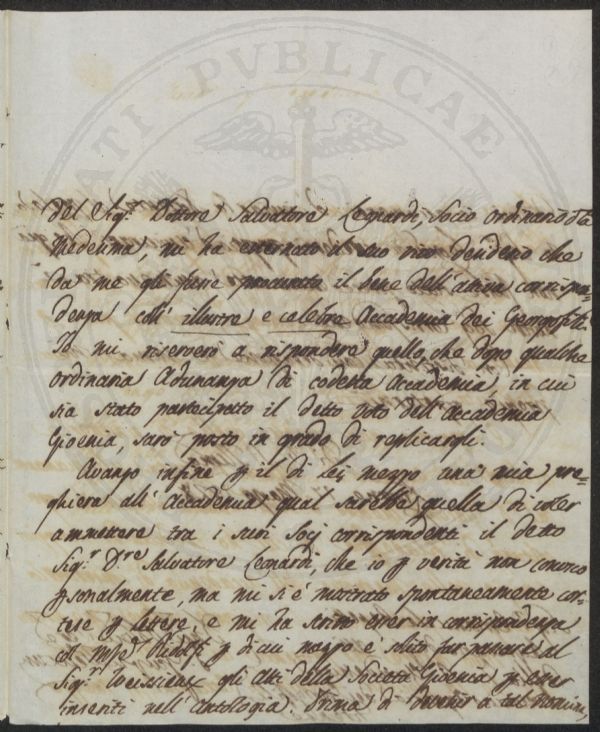 del Sig.r Dottore Salvatore Leonardi, Socio ordinario d.la
Medesima, mi ha esternato il suo vivo desiderio che
da me gli fusse procurato il bene dell'amica corrispon=
denza coll' illustre e celebre Accademia dei Georgofili.
Io mi riserverò a rispondere quello, che dopo qualche
ordinaria Adunanza di codesta Accademia, in cui
sia stato partecipato il detto voto dell'Accademia
Gioenia, sarò posto in grado di replicargli.
Avanzo infine p il di Lei mezzo una mia pre=
ghiera all' Accademia qual sarebbe quella di voler
ammettere tra i suoi Socj corrispondenti il detto
Sig.r D.re Salvatore Leonardi, che io p verità non conosco
psonalmente, ma mi si è mostrato spontaneamente cor=
tese p lettere, e mi ha scritto esser in corrispondenza
col Ridolfi p di cui mezzo è solito far passare al
Sig.r Vieusseux gli Atti della Società Gioenia p esser
inseriti nell' Antologia. Prima di devenir a tal Nomina,
PUBLICAE